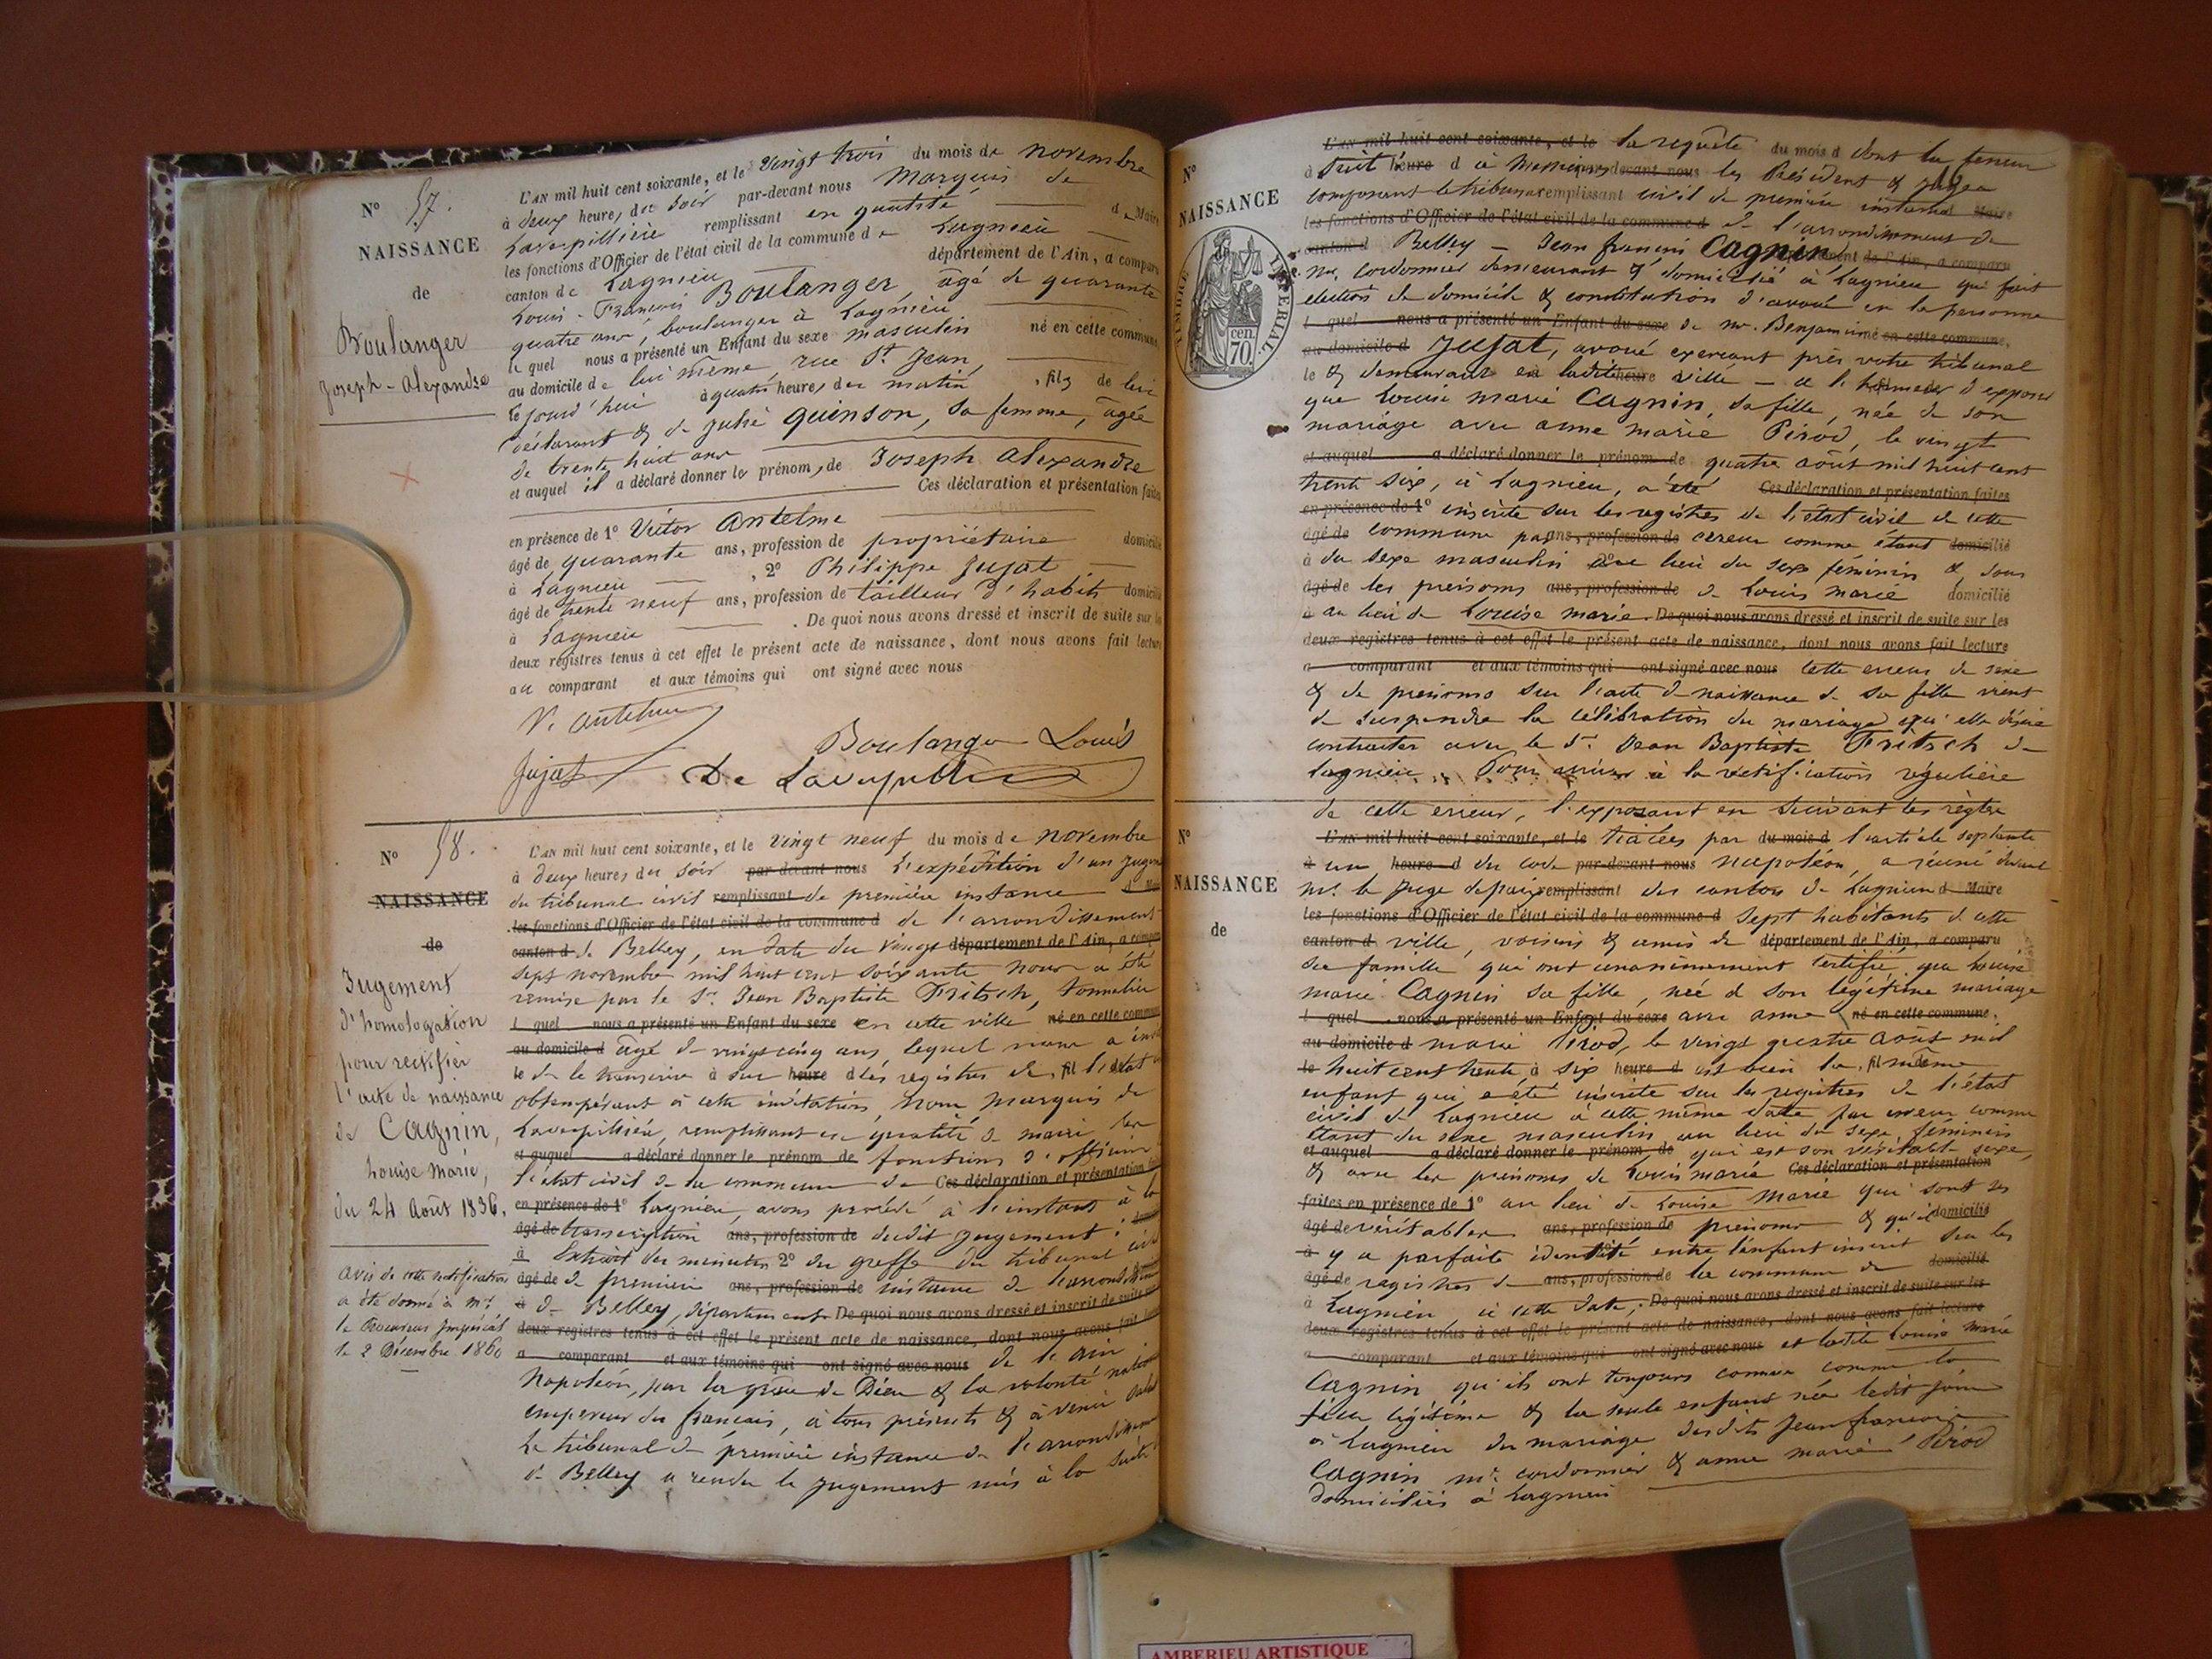 N° 57.
NAISSANCE
de
Boulanger
Joseph-Alexandre
L'AN mil huit cent soixante, et le vingt trois du mois de novembre
à deux heures du soir par-devant nous Marquis de
Laverpillière remplissant en qualité de Maire
les fonctions d'Officier de l'état civil de la commune de Lagnieu
canton de Lagnieu département de l'Ain, a comparu
Louis-François Boulanger, âgé de quarante
quatre ans, boulanger à Lagnieu
lequel nous a présenté un Enfant du sexe masculin né en cette commune
au domicile de lui même, rue St Jean,
le jourd'hui à quatre heures du matin, fils de lui
déclarant & de Julie Quinson, sa femme, âgée
de trente huit ans
et auquel il a déclaré donner les prénoms de Joseph Alexandre
Ces déclaration et présentation faites
en présence de 1° Victor Antelme
âgé de quarante ans, profession de propriétaire domicilié
à Lagnieu, 2° Philippe Jujat
âgé de trente neuf ans, profession de tailleur d'habits domicilié
à Lagnieu . De quoi nous avons dressé et inscrit de suite sur les
deux registres tenus à cet effet le présent acte de naissance, dont nous avons fait lecture
au comparant et aux témoins qui ont signé avec nous
V. Antelme
Boulanger Louis
Jujat De Laverpillière
N° 58.
NAISSANCE
de
Jugement
d'homologation
pour rectifier
l'acte de naissance
de Cagnin,
Louise Marie,
du 24 Août 1836.
Avis de cette rectification
a été donné à Mr
le Procureur Impérial
le 2 Décembre 1860
L'AN mil huit cent soixante, et le vingt neuf du mois de novembre
à deux heures du soir par-devant nous l'expédition d'un jugement
du tribunal civil remplissant de première instance d Maire
les fonctions d'Officier de l'état civil de la commune d de l'arrondissement
canton d de Belley, en date du vingt département de l'Ain, a comparu
sept novembre mil huit cent soixante nous a été
remise par le Sr Jean Baptiste Fritsch, tonnelier
l quel nous a présenté un Enfant du sexe en cette ville né en cette commune
au domicile d âgé de vingt cinq ans, lequel nous a invité
le de le transcrire à sur heure d les registres de, fil l'état
obtempérant à cette invitation, nous, Marquis de
Laverpillière, remplissant en qualité de maire les
et auquel a déclaré donner le prénom de fonctions d'officier
l'état civil de la commune de Ces déclaration et présentation
en présence de 1° Lagnieu, avons procédé à l'instant à la
âgé de transcription ans, profession de dudit jugement :
à Extrait des minutes 2° du greffe du tribunal civil
âgé de de première ans, profession de instance de l'arrondissement
à de Belley, département De quoi nous avons dressé et inscrit de suite sur
deux registres tenus à cet effet le présent acte de naissance, dont nous avons fait
a comparant et aux témoins qui ont signé avec nous de l'Ain
Napoléon, par la grâce de Dieu & la volonté nationale
empereur des français, à tous présents & à venir salut
Le tribunal de première instance de l'arrondissement
de Belley a rendu le jugement mis à la suite
N°
NAISSANCE
TIMBRE IMPERIAL
70 cen
L'AN mil huit cent soixante, et le la requête du mois d dont la teneur
à suit heure d à Messieurs par-devant nous les Président & juges
composant le tribunal remplissant civil de première instance Maire
les fonctions d'Officier de l'état civil de la commune d de l'arrondissement de
canton d Belley – Jean françois Cagnin département de l'Ain, a comparu
mr. cordonnier demeurant & domicilié à Lagnieu qui fait
élection de domicile & constitution d'avoué en la personne
l quel nous a présenté un Enfant du sexe de mr. Benjamin né en cette commune,
au domicile d Jujat, avoué exerçant près votre tribunal
le & demeurant en ladite heure ville – a l'honneur d'exposer
que Louise Marie Cagnin, sa fille, née de son
mariage avec anne marie Pirod, le vingt
et auquel a déclaré donner le prénom de quatre août mil huit cent
trente six, à Lagnieu, a été Ces déclaration et présentation faites
en présence de 1° inscrite sur les registres de l'état civil de cette
âgé de commune par ans, profession de erreur comme étant domicilié
à du sexe masculin 2° au lieu du sexe féminin &, sous
âgé de les prénoms ans, profession de de Louis Marie domicilié
à au lieu de Louise Marie. De quoi nous avons dressé et inscrit de suite sur les
deux registres tenus à cet effet le présent acte de naissance, dont nous avons fait lecture
a comparant et aux témoins qui ont signé avec nous cette erreur de sexe
& de prénoms sur l'acte de naissance de sa fille vient
de suspendre la célébration du mariage qu'elle désire
contracter avec le Sr. Jean Baptiste Fritsch de
Lagnieu. Pour arriver à la rectification régulière
de cette erreur, l'exposant en suivant les règles
N°
NAISSANCE
de
L'AN mil huit cent soixante, et le tracées par du mois d l'article septante
à un heure d du code par-devant nous napoléon, a réuni devant
mr. le juge de paix remplissant du canton de Lagnieu d Maire
les fonctions d'Officier de l'état civil de la commune d sept habitants de cette
canton d ville, voisins & amis de département de l'Ain, a comparu
sa famille, qui ont unanimement certifié que Louise
marie Cagnin sa fille, née de son légitime mariage
l quel nous a présenté un Enfant du sexe avec anne né en cette commune,
au domicile d marie Pirod, le vingt quatre Août mil
le huit cent trente à six heure d est bien la, fil même
enfant qui a été inscrite sur les registres de l'état
civil de Lagnieu à cette même date par erreur comme
étant du sexe masculin au lieu du sexe féminin
et auquel a déclaré donner le prénom de qui est son véritable sexe,
& avec les prénoms de Louis Marie Ces déclaration et présentation
faites en présence de 1° au lieu de Louise Marie qui sont ses
âgé de véritables ans, profession de prénoms & qu'il domicilié
à y a parfaite identité entre l'enfant inscrit sur les
âgé de registres de ans, profession de la commune de domicilié
à Lagnieu à cette date; De quoi nous avons dressé et inscrit de suite sur les
deux registres tenus à cet effet le présent acte de naissance, dont nous avons fait lecture
a comparant et aux témoins qui ont signé avec nous et ladite Louise Marie
Cagnin qu'ils ont toujours connue comme la
fille légitime & la seule enfant née ledit jour
à Lagnieu du mariage desdits Jean françois
Cagnin mr. cordonnier & anne marie Pirod
domiciliés à Lagnieu
AMBERIEU ARTISTIQUE